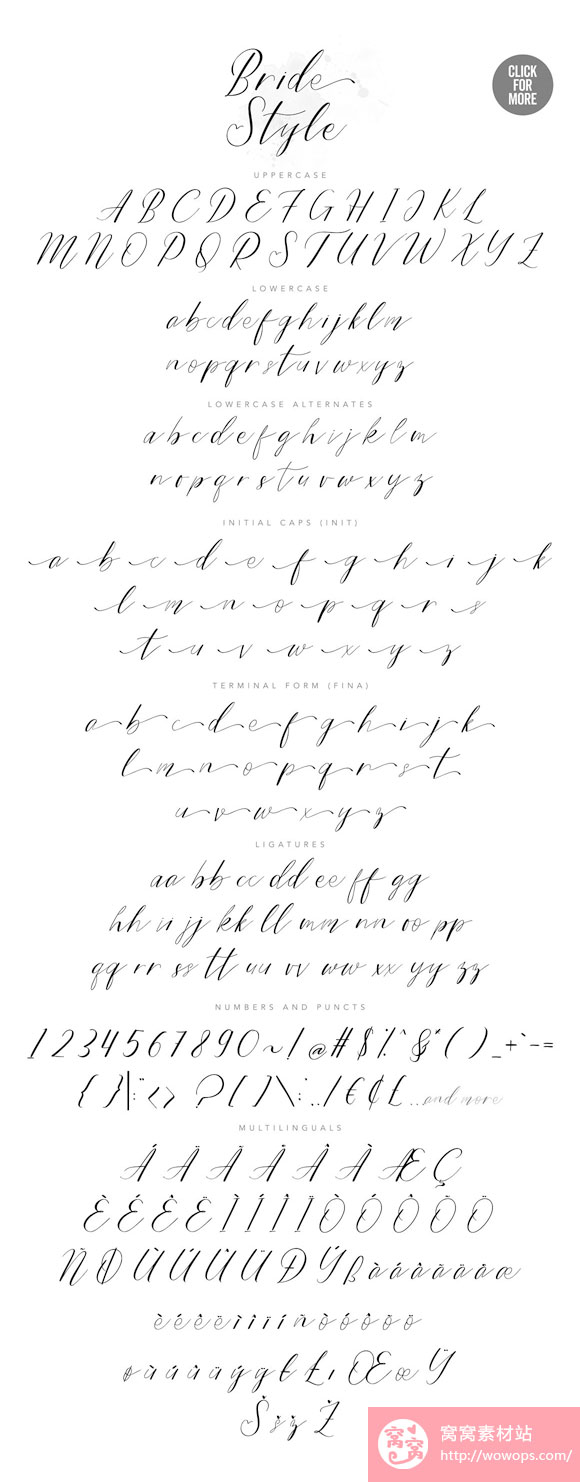 Bride
Style
CLICK
FOR
MORE
UPPERCASE
A B C D E F G H I J K L
M N O P Q R S T U V W X Y Z
LOWERCASE
a b c d e f g h i j k l m
n o p q r s t u v w x y z
LOWERCASE ALTERNATES
a b c d e f g h i j k l m
n o p q r s t u v w x y z
INITIAL CAPS (INIT)
a b c d e f g h i j k
l m n o p q r s
t u v w x y z
TERMINAL FORM (FINA)
a b c d e f g h i j k
l m n o p q r s t
u v w x y z
LIGATURES
aa bb cc dd ee ff gg
hh ii jj kk ll mm nn oo pp
qq rr ss tt uu vv ww xx yy zz
NUMBERS AND PUNCTS
1 2 3 4 5 6 7 8 9 0 ~ ! @ # $ % ^ & * ( ) _ + ` - =
{ } | : " < > ? [ ] \ ; ' , . / € ¢ £ ...and more
MULTILINGUALS
È É Ê Ë Ì Í Î Ï Ò Ó Ô Õ Ö
è é ê ë ì î ï í ñ ò ó ô õ ö
Š š ž Ž
窝窝
窝窝素材站
http://wowops.com/